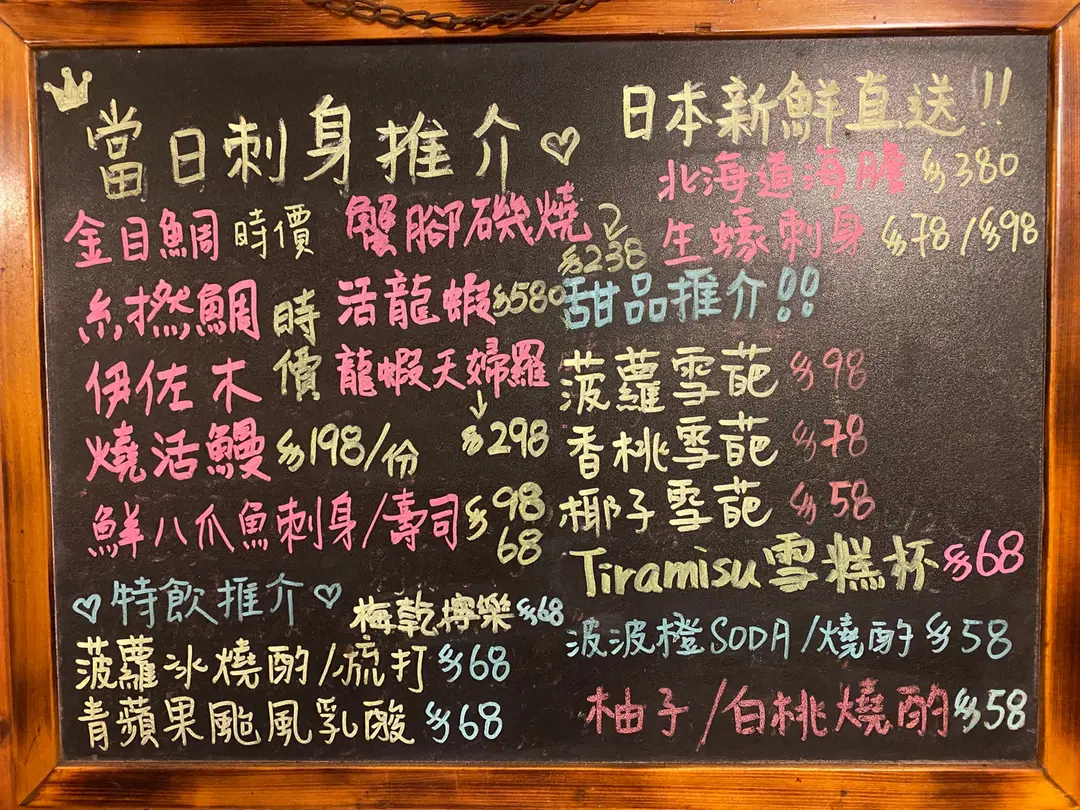 當日刺身推介
金目鯛 時價
糸撚鯛 時價
伊佐木
燒活鰻 $198/份
鮮八爪魚刺身/壽司 $98 68
蟹腳磯燒 $238
活龍蝦 $580
龍蝦天婦羅 $298
日本新鮮直送!!
北海道海膽 $380
生蠔刺身 $78/$98
甜品推介!!
菠蘿雪葩 $98
香桃雪葩 $78
椰子雪葩 $58
Tiramisu雪糕杯 $68
特飲推介
梅乾檸樂 $68
菠蘿冰燒酌/梳打 $68
青蘋果颱風乳酸 $68
波波橙SODA/燒酌 $58
柚子/白桃燒酌 $58